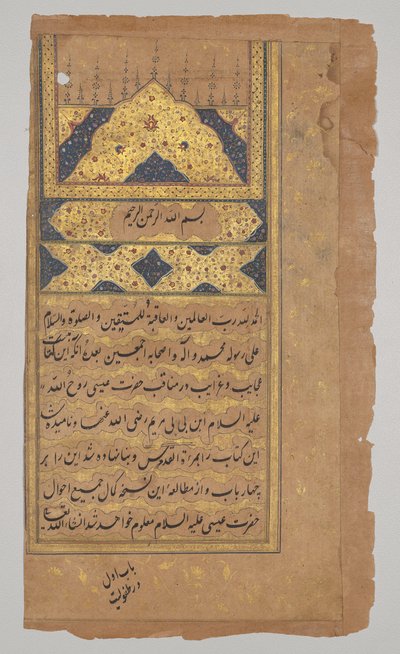 بسم الله الرحمن الرحیم
الحمد لله رب العالمین والعاقبة للمتقین و الصلوة والسلام
علی رسوله محمد و آله و اصحابه اجمعین بعده آنکه این
عجایب و غرایب در مناقب حضرت عیسی روح الله
علیه السلام ابن بی بی مریم رضی الله عنها و نامیده شد
این کتاب را مرءة القدس و بنا نهاده شد این را بر
چهار باب و از مطالعه این نسخه کمال جمیع احوال
حضرت عیسی علیه السلام معلوم خواهد شد انشاء الله تعالی
باب اول
در طفولیت